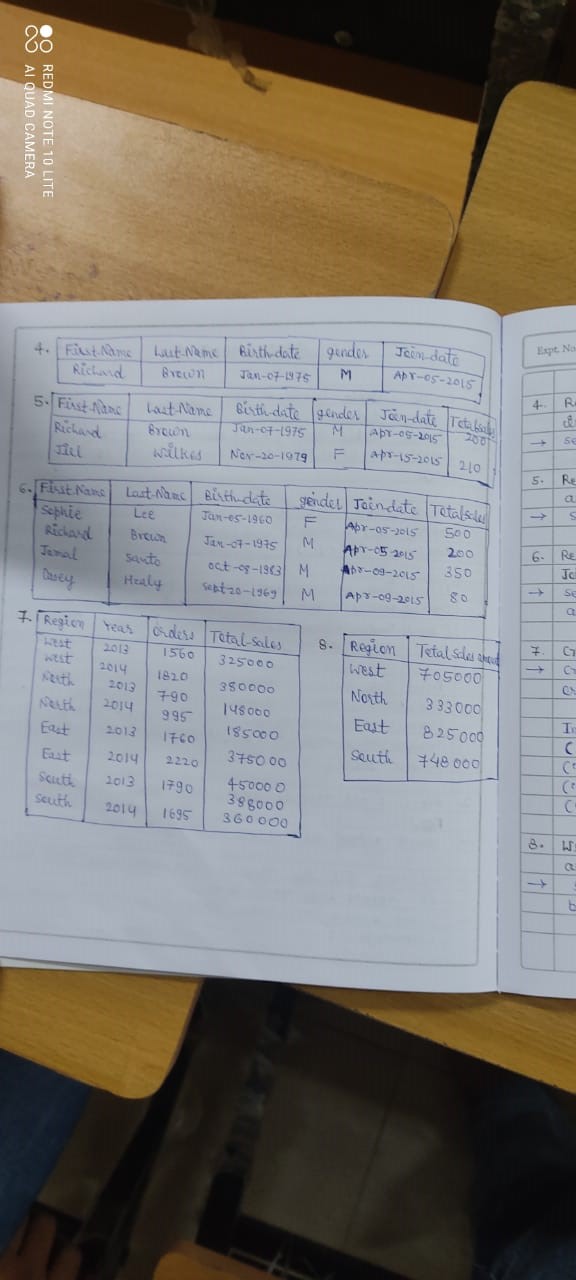 REDMI NOTE 10 LITE
AI QUAD CAMERA
4. First-Name Last-Name Birth-date gender Join-date
Richard Brown Jan-07-1975 M Apr-05-2015
5. First-Name Last-Name Birth-date gender Join-date Totalsales
Richard Brown Jan-07-1975 M Apr-05-2015 200
Jill Wilkes Nov-20-1979 F Apr-15-2015 210
6. First-Name Last-Name Birth-date gender Join-date Totalsales
Sophie Lee Jan-05-1960 F Apr-05-2015 500
Richard Brown Jan-07-1975 M Apr-05-2015 200
Jamal Santo oct-08-1983 M Apr-09-2015 350
Casey Healy Sept-20-1969 M Apr-09-2015 80
7. Region Year Orders Total-sales
West 2013 1560 325000
West 2014 1820 380000
North 2013 790 148000
North 2014 995 185000
East 2013 1760 375000
East 2014 2220 450000
South 2013 1790 388000
South 2014 1695 360000
8. Region Total sales
West 705000
North 333000
East 825000
South 748000
Expt. No
4. R
→ se
5. Re
a
→ s
6. Re
Jo
→ se
a
7. Cr
→ Cr
cr
In
8. W
a
→
b